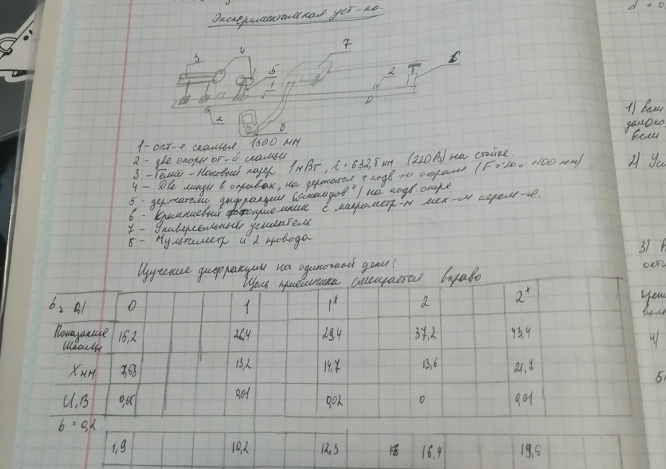 Экспериментальная уст-ка
3 4 7
5 2 6
1
2 8
1 - опт-я скамья 1500 мм
2 - две опоры опт-й скамьи
3 - Гелий-Неоновый лазер, 1 мВт, λ = 632,8 нм (220В) на стойке.
4 - Две линзы в оправах, на держател с подв-ми опорами (F=20 и +100 мм)
5 - держатель дифракции на подв. опоре
6 - Кремниевый фотоприемник с микрометр-м мех-м перем-я.
7 - Универсальный усилитель
8 - Мультиметр и 2 провода
Изучение дифракции на одиночной щели:
Щель приемника смещается вправо
0 1 1* 2 2*
Показание шкалы 15,2 26,4 29,4 37,2 43,4
X мм 13,2 14,7 13,6 21,7
U, В 0,01 0,02 0 0,01
b = 0,2
1,9 10,2 12,3 16,4 19,5
1) если
2) Ус
3)
4)